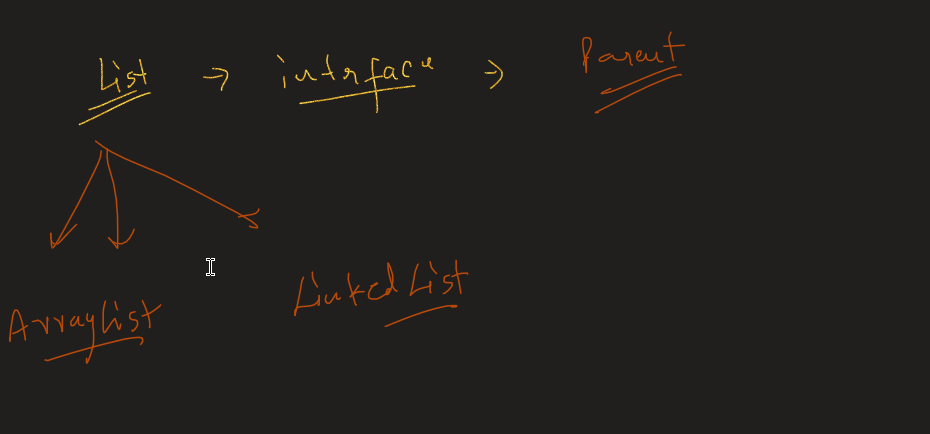 List → interface → Parent
ArrayList LinkedList